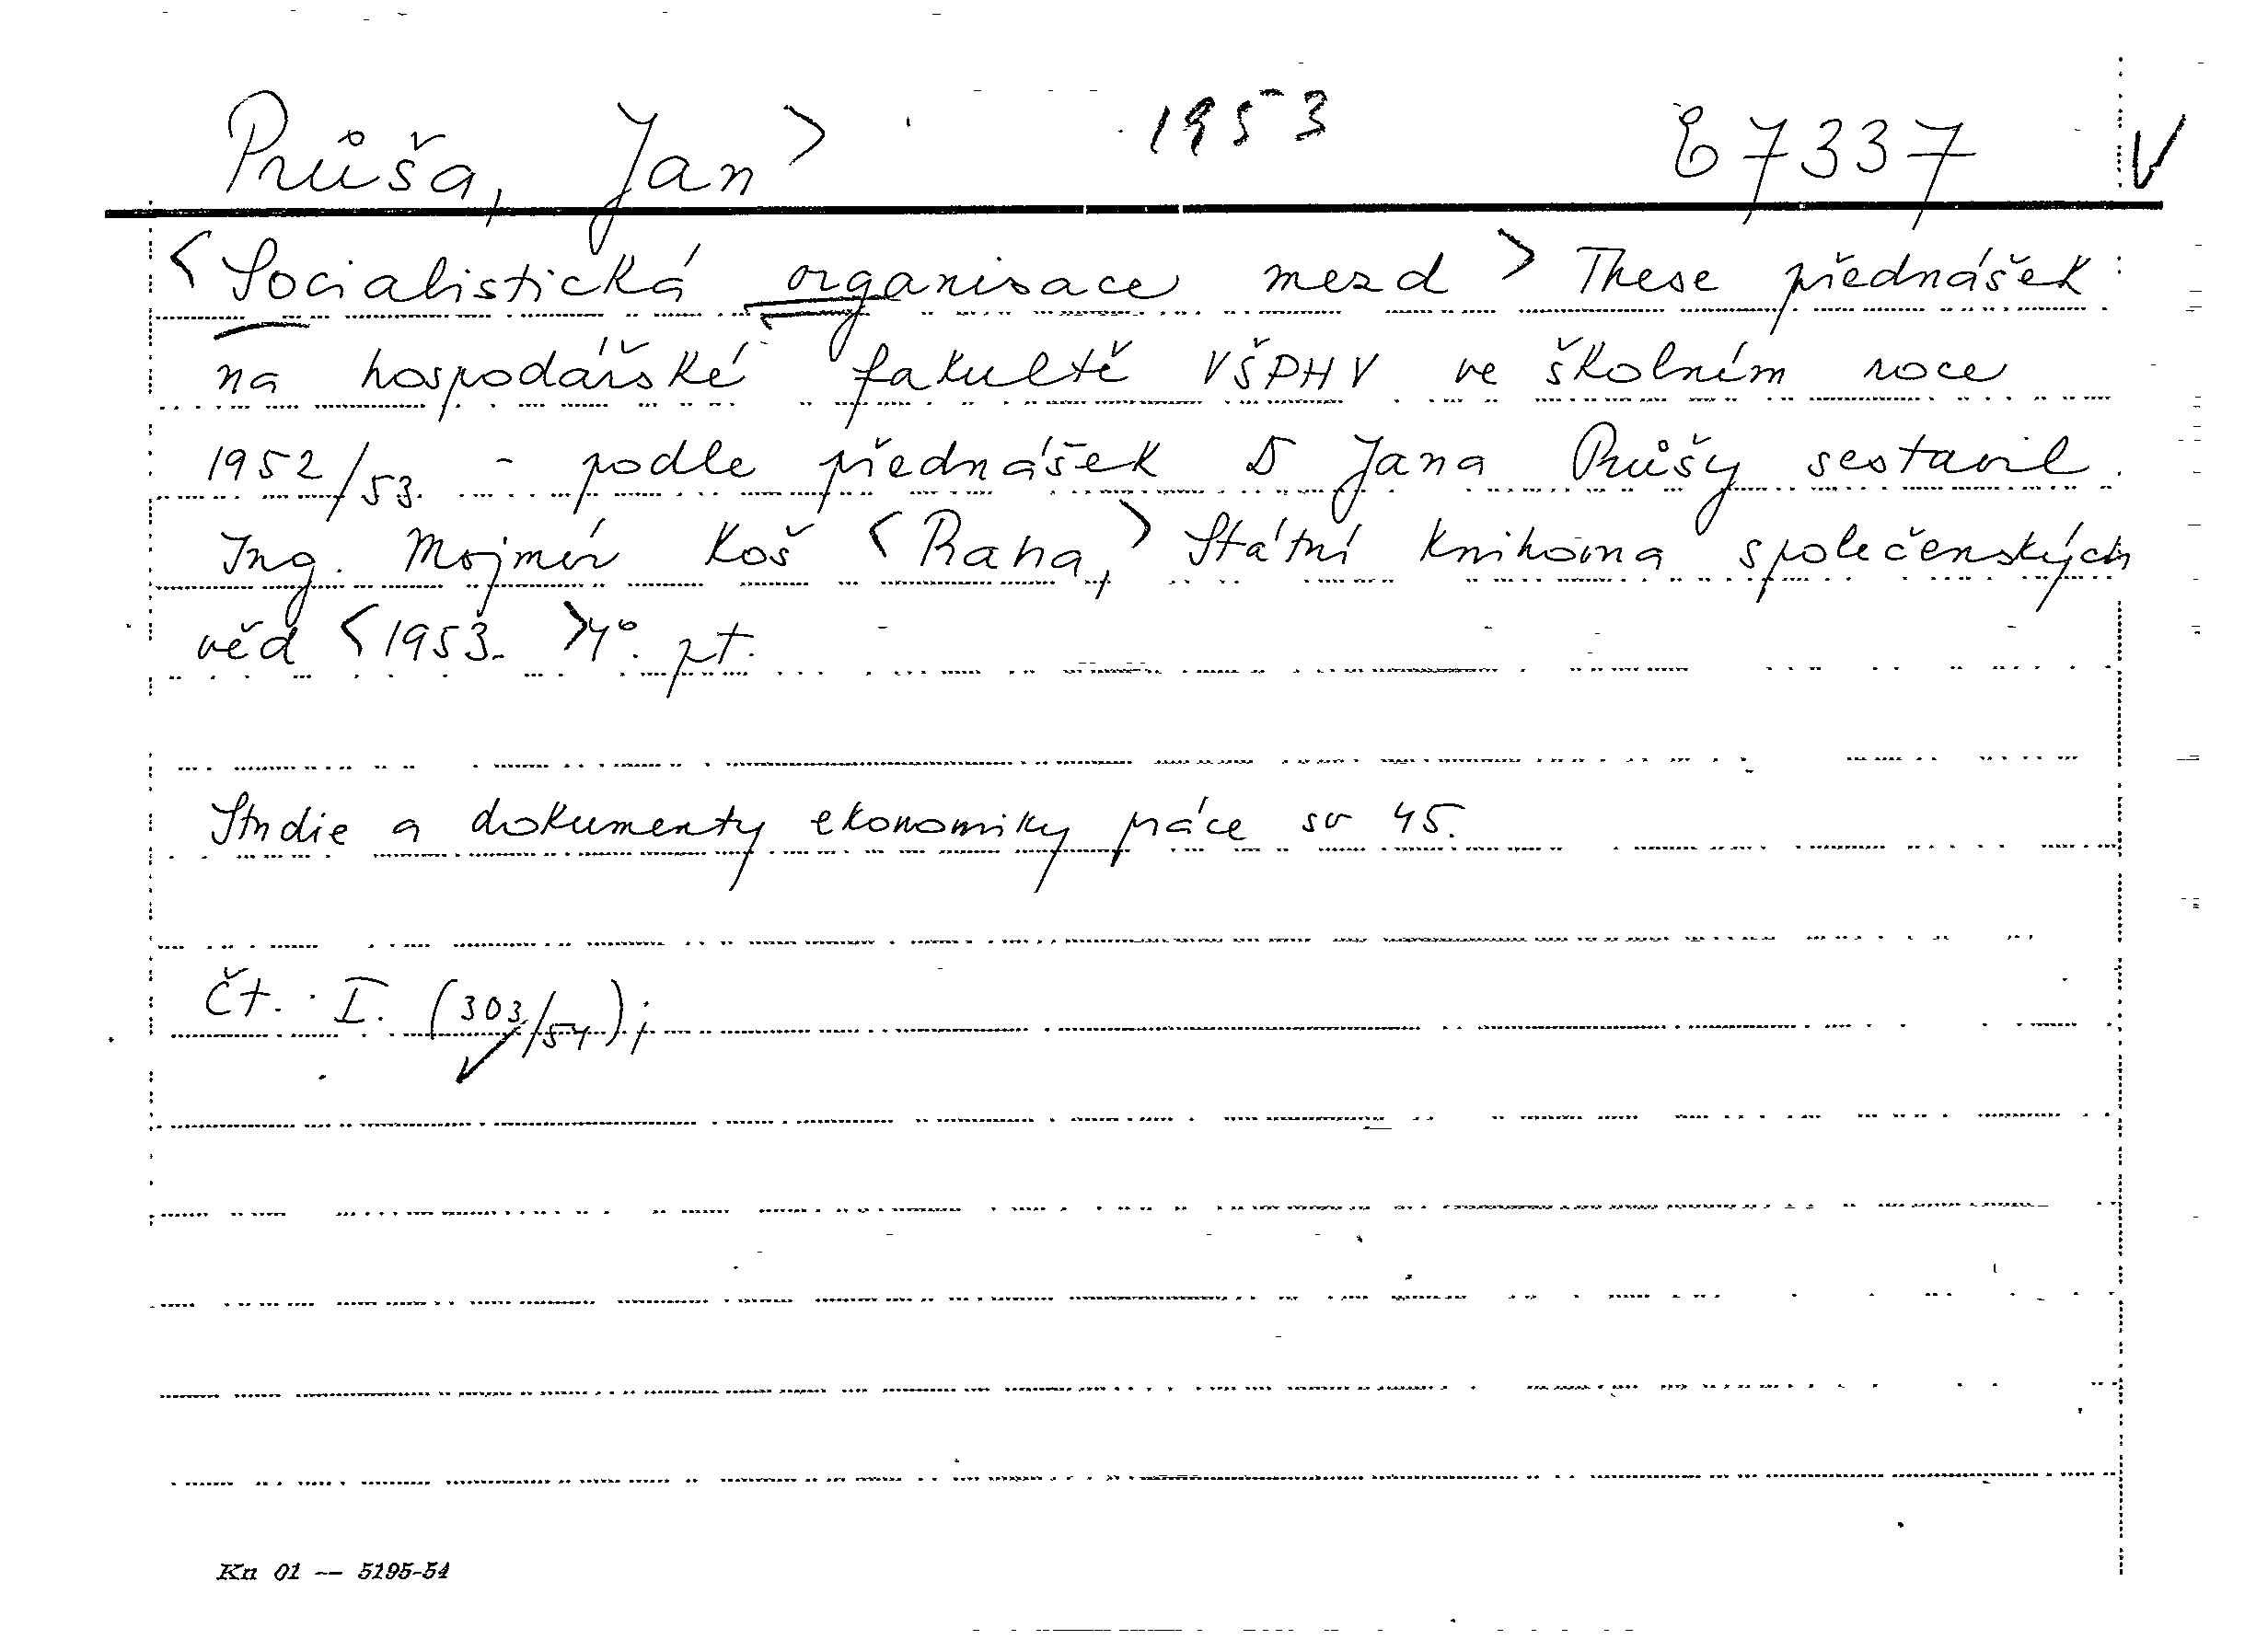 Průša, Jan > 1953 E 7337 V
< Socialistická organisace mezd > These přednášek
na hospodářské fakultě VŠPHV ve školním roce
1952/53. - podle přednášek D Jana Průšy sestavil
Ing. Mojmír Koš < Praha, > Státní knihovna společenských
věd < 1953. > 4°. pt.
Studie a dokumenty ekonomiky práce sv 45.
Čt. I. (303/54);
Kn 01 — 5195-54